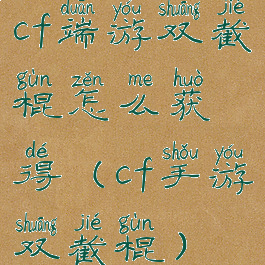 duān yóu shuāng jié
cf端游双截
gùn zěn me huò
棍怎么获
dé shǒu yóu
得（cf手游
shuāng jié gùn
双截棍）